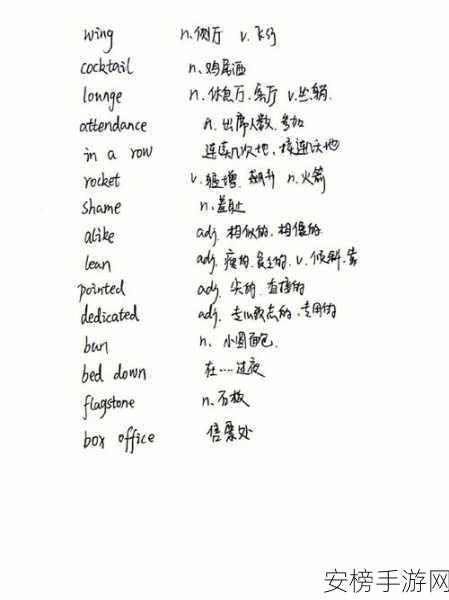 wing n. 侧厅 v. 飞行
cocktail n. 鸡尾酒
lounge n. 休息厅. 客厅 v. 坐躺.
attendance n. 出席人数. 参加
in a row 连续几次地. 接连地
rocket v. 猛增. 飙升 n. 火箭
shame n. 羞耻
alike adj. 相似的. 相像的
lean adj. 瘦的. v. 倾斜. 靠
pointed adj. 尖的. 直接的
dedicated adj. 专心致志的. 专用的
bun n. 小圆面包.
bed down 在....过夜
flagstone n. 石板
box office 售票处
安榜手游网